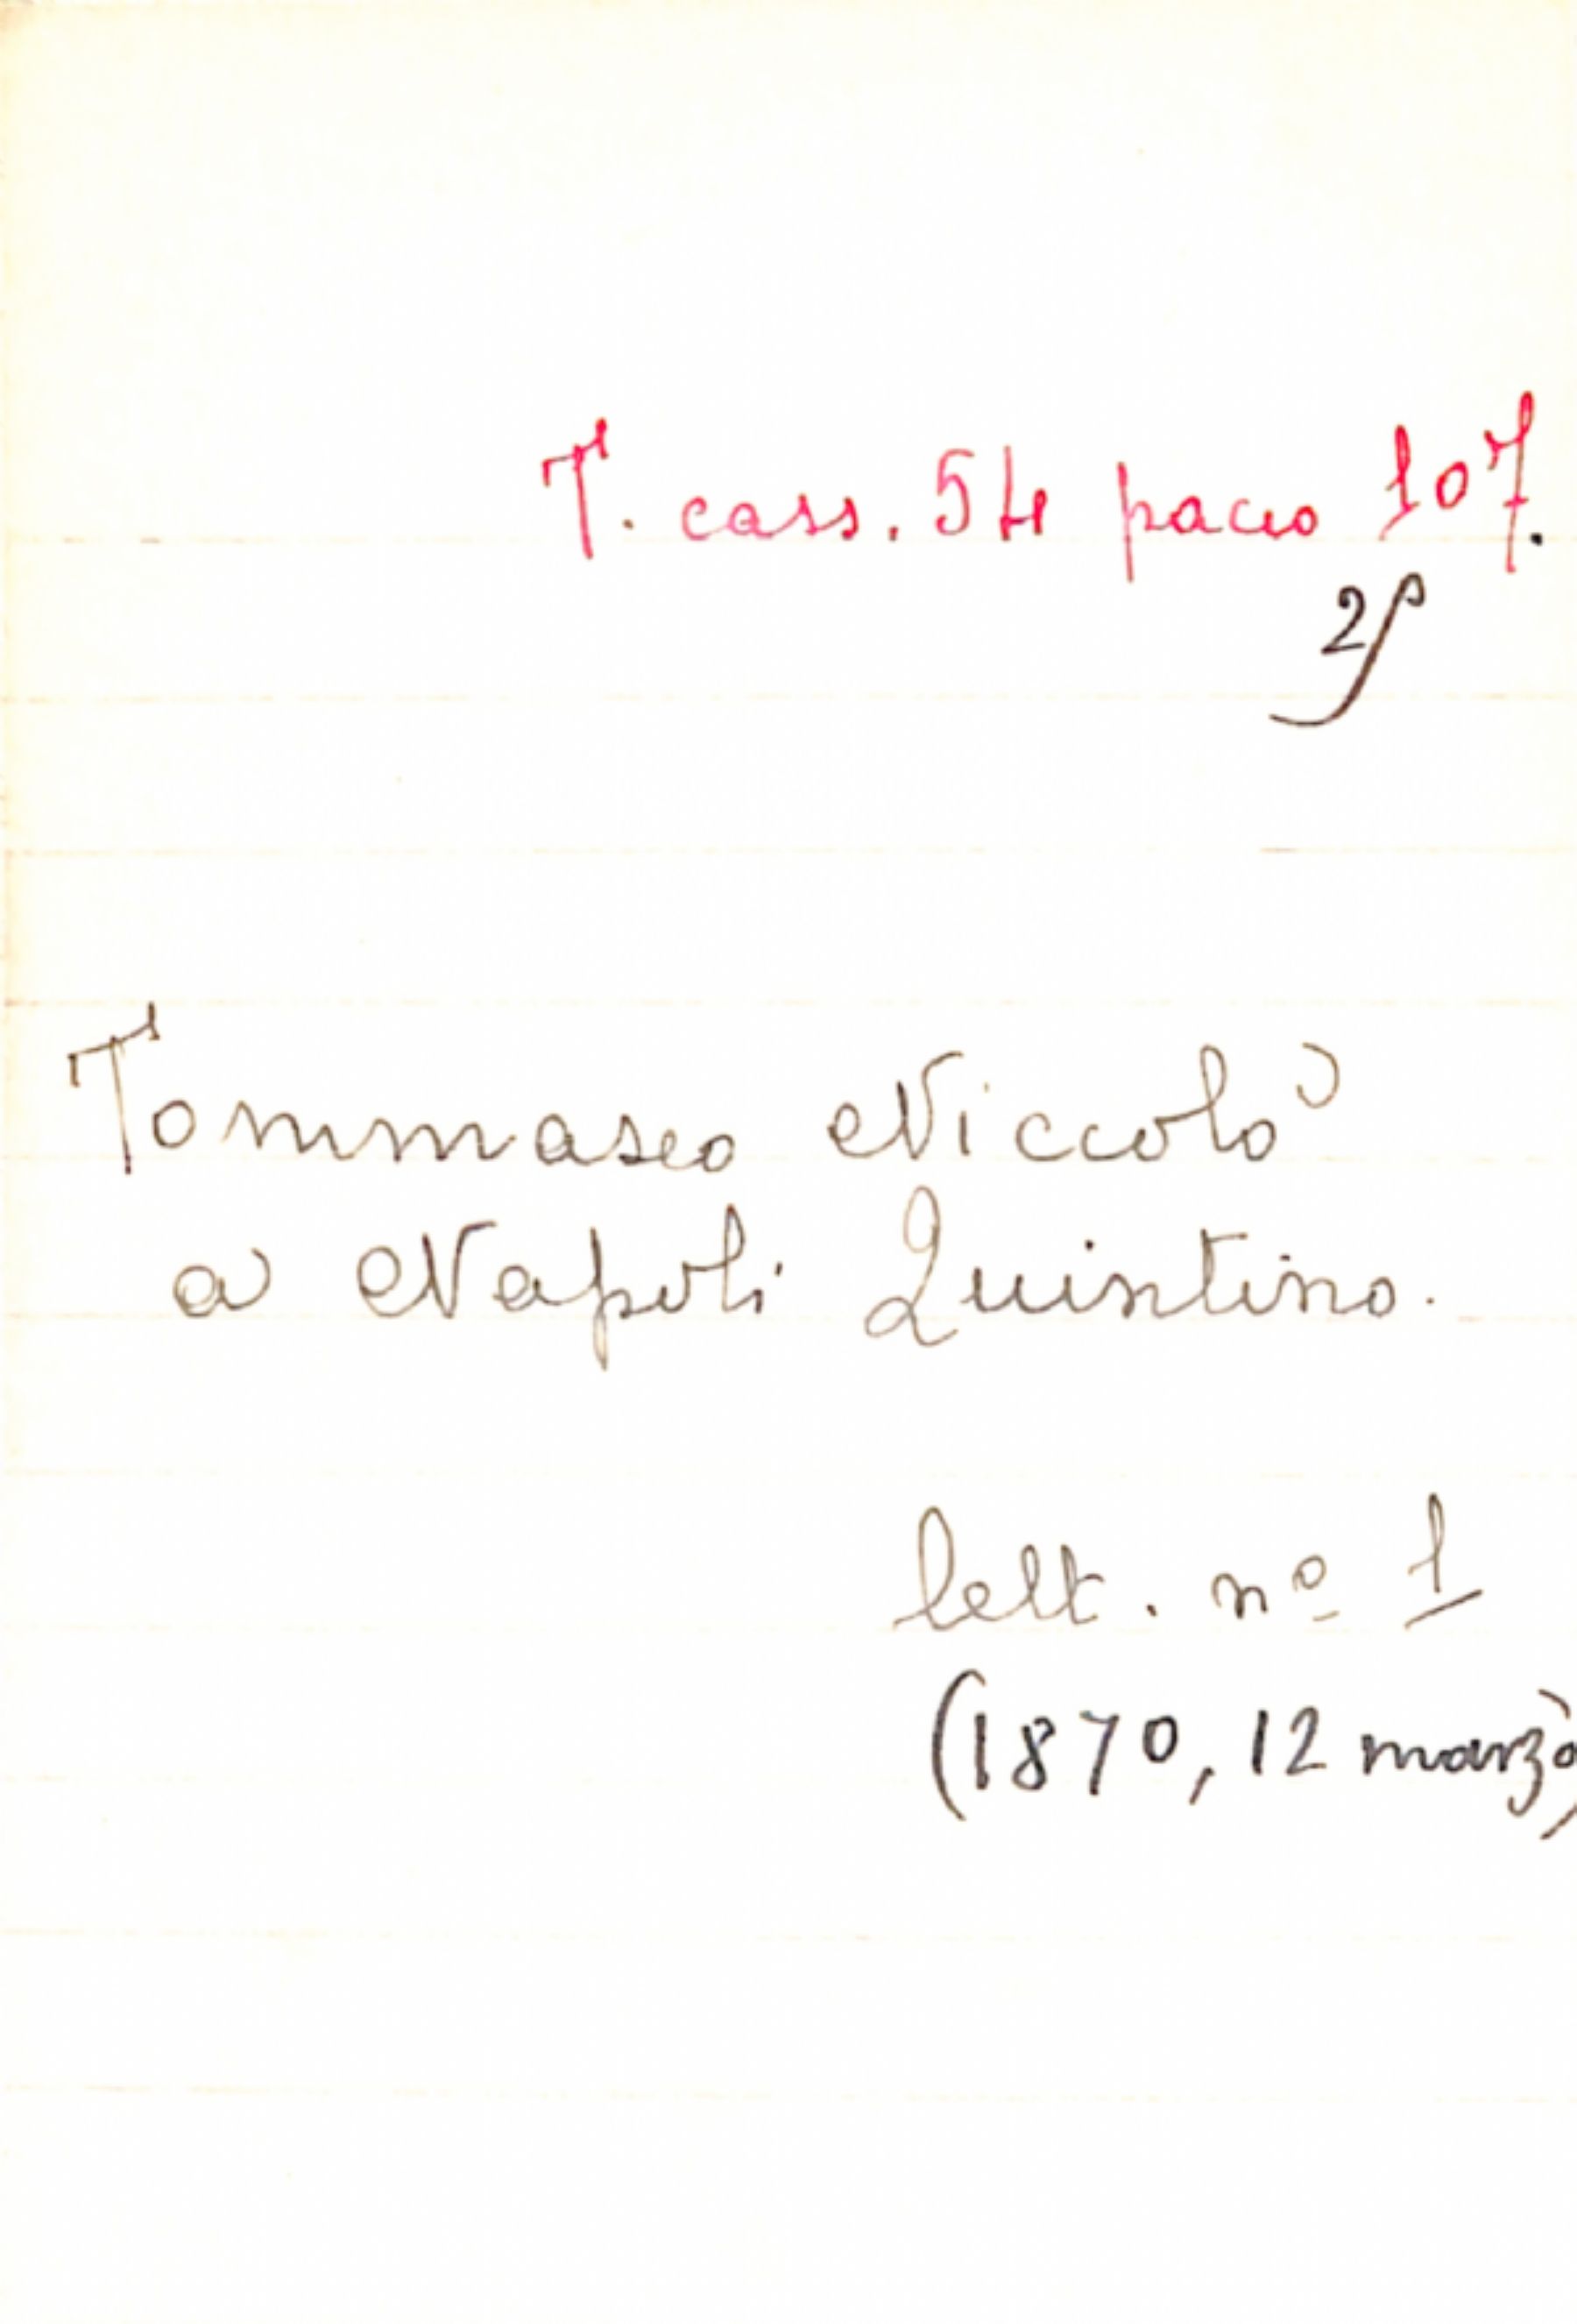 T. cass. 54 pacco 107.
2
Tommaseo Niccolò
a Napoli Quintino.
lett. nº 1
(1870, 12 marzo)